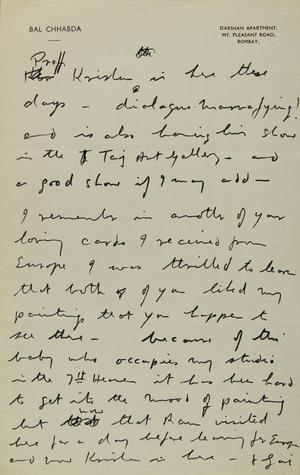 BAL CHHABDA
DARSHAN APARTMENT,
MT. PLEASANT ROAD,
BOMBAY.
Proff. Krishen is here these
days - dialogue-
and is also having his show
in the Taj Art Gallery - and
a good show if I may add -
I remember in another of your
loving cards I received from
Europe I was thrilled to learn
that both of you liked my
paintings that you happen to
see there - because of this
baby who occupies my studio
in the 7th Heaven it has been hard
to get into the mood of painting
but now that Ram visited
here for a day before leaving for Europe
and now Krishen is here - &